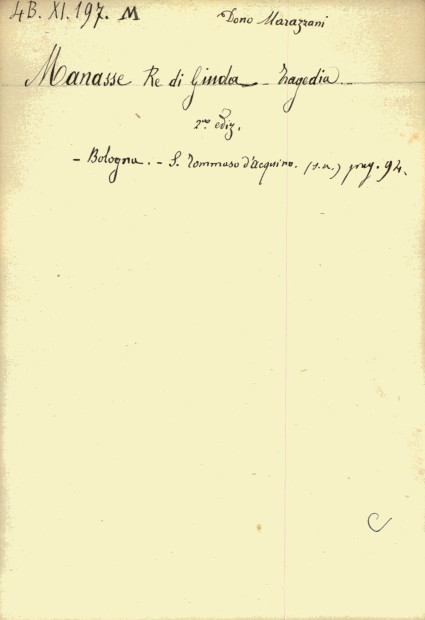 4B. XI. 197. M
Dono Marazzani
Manasse Re di Giuda - Tragedia. -
2ª ediz.
- Bologna. - S. Tommaso d'Acquino. (s.a.) pag. 94.
C